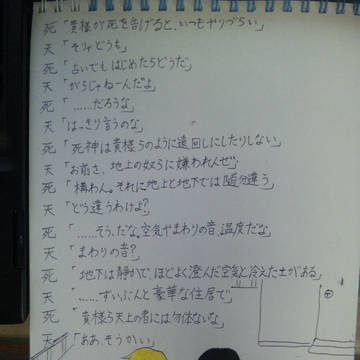 死「貴様が死を告げると、いつもヤリづらい」
天「そりゃどうも」
死「占いでもはじめたらどうだ」
天「がらじゃねーんだよ」
死「……だろうな」
天「はっきり言うのな」
死「死神は貴様らのように遠回しにしたりしない」
天「お前さ、地上の奴らに嫌われんぜ」
死「構わん。それに地上と地下では随分違う」
天「どう違うわけよ?」
死「……そうだな。空気やまわりの音、温度だな」
天「まわりの音?」
死「地下は静かで、ほどよく澄んだ空気と冷えた土がある」
天「……ずいぶんと豪華な住居で」
死「貴様ら天上の者には勿体ないな」
天「ああ、そうかい」